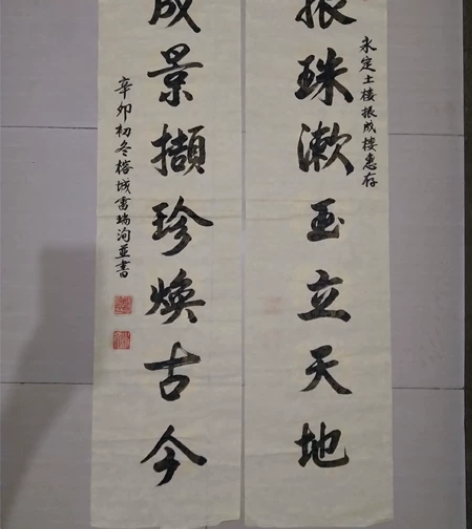 永定土楼振成楼惠存
振珠漱玉立天地
成景擷珍焕古今
辛卯初冬榕城瑞洵並書